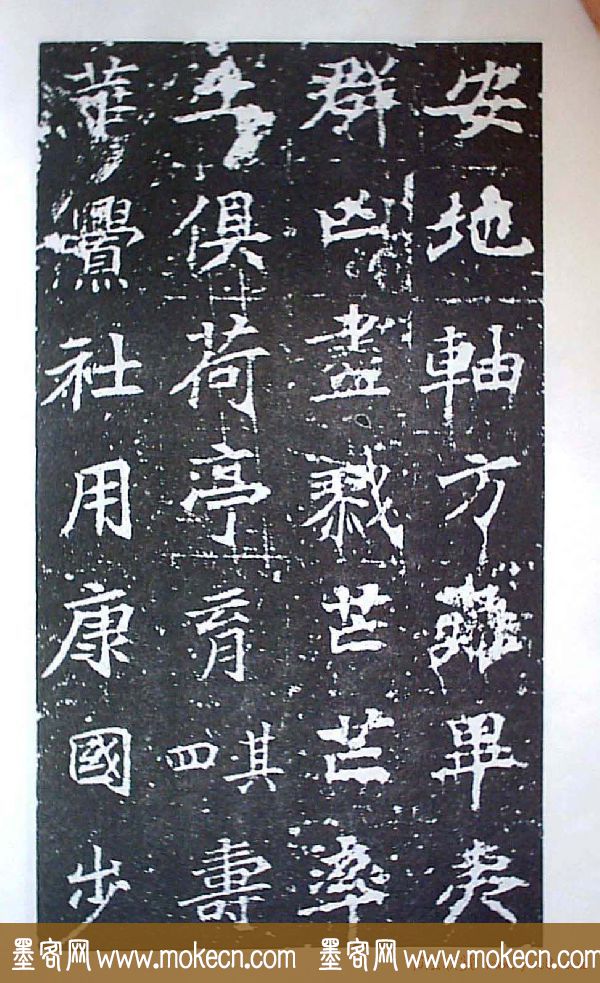 安地軸方畢夷
群凶盡戮芒芒率
土俱荷亭育其四壽
華爨社用康國步
墨客网 www.mokecn.com 墨客网 www.mokecn.com